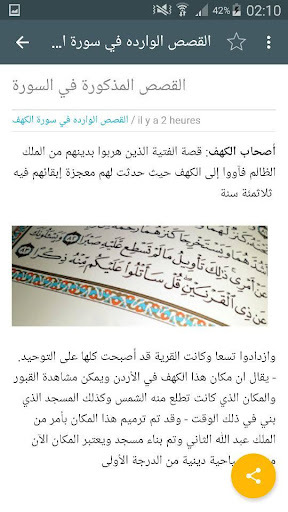 42% 02:10
القصص الوارده في سورة ا...
القصص المذكورة في السورة
القصص الوارده في سورة الكهف / il y a 2 heures
أصحاب الكهف: قصة الفتية الذين هربوا بدينهم من الملك
الظالم فآووا إلى الكهف حيث حدثت لهم معجزة إبقائهم فيه
ثلاثمئة سنة
أمري ذلك تأويل ما لم تسطع عليه صبرا
عن ذي القرنين قل سأتلوا عليكم منه ذكرا
وازدادوا تسعا وكانت القرية قد أصبحت كلها على التوحيد.
- يقال ان مكان هذا الكهف في الأردن ويمكن مشاهدة القبور
والمكان الذي كانت تطلع منه الشمس وكذلك المسجد الذي
بني في ذلك الوقت - وقد تم ترميم هذا المكان بأمر من
الملك عبد الله الثاني وتم بناء مسجد ويعتبر المكان الآن
سياحية دينية من الدرجة الأولى